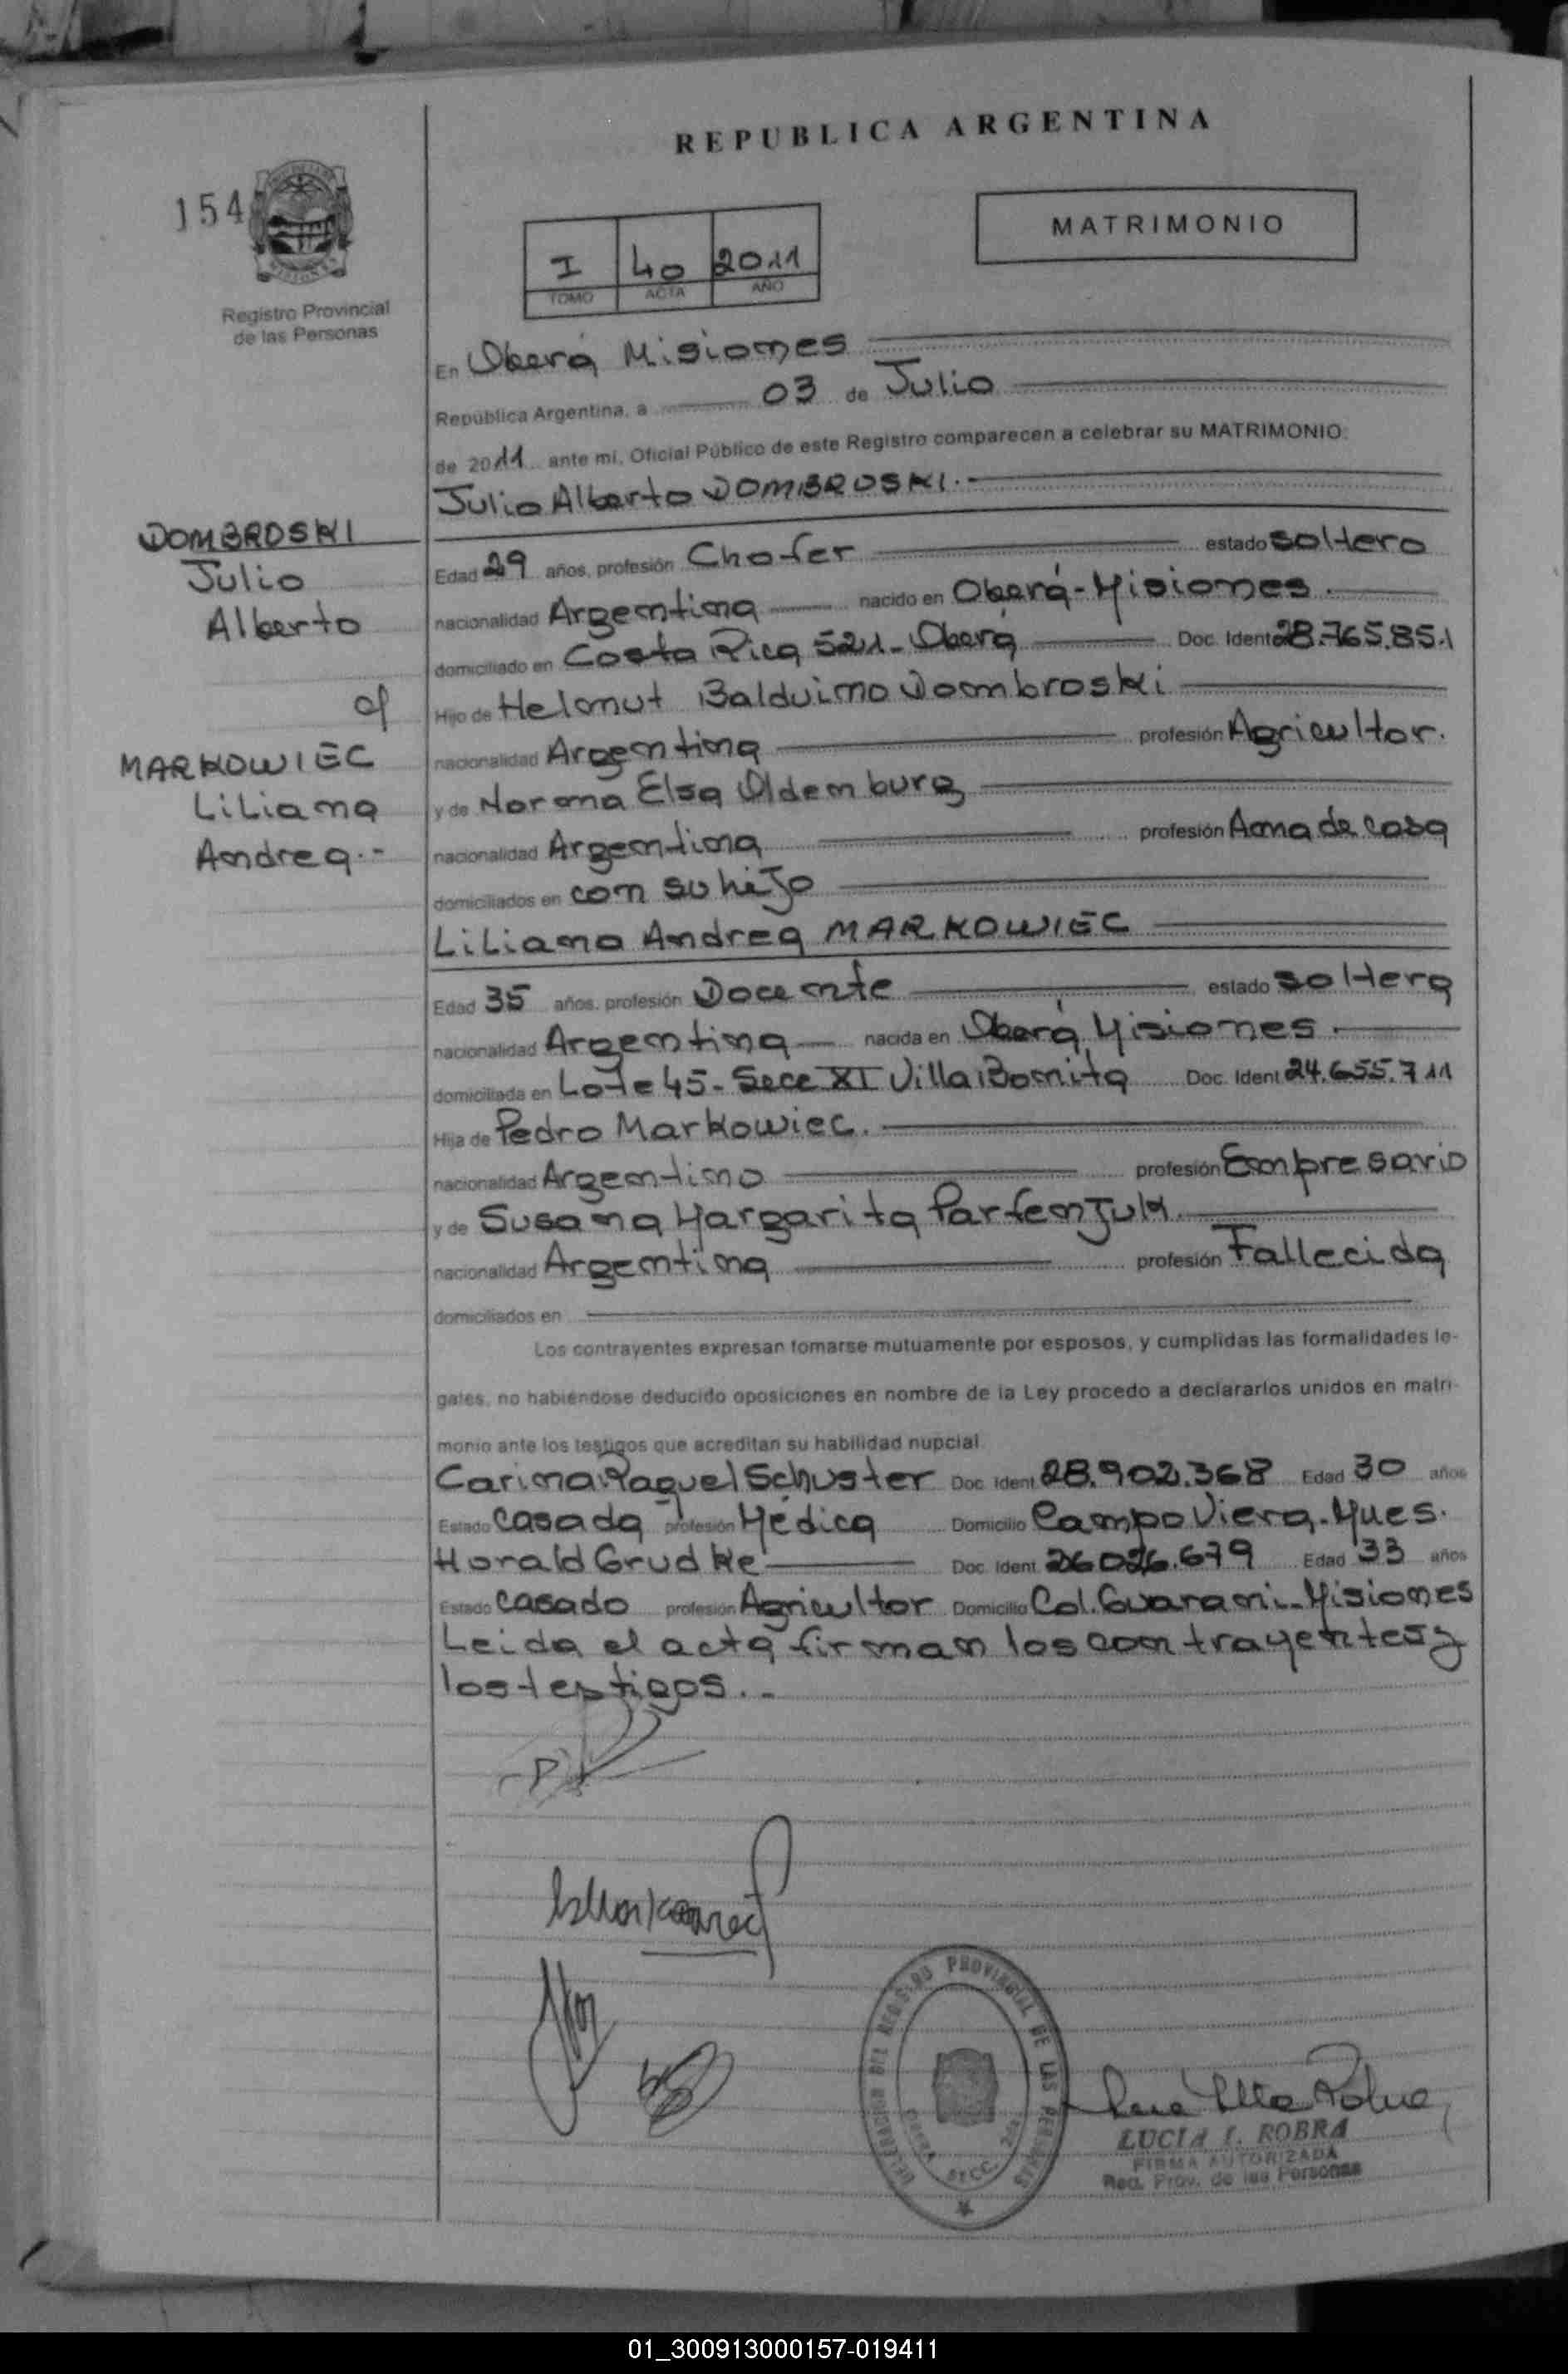 REPUBLICA ARGENTINA
154
MATRIMONIO
I 40 2011
TOMO ACTA AÑO
Registro Provincial
de las Personas
En Oberá Misiones
República Argentina, a 03 de Julio
de 2011 ante mi, Oficial Público de este Registro comparecen a celebrar su MATRIMONIO:
Julio Alberto DOMBROSKI.-
DOMBROSKI
Julio
Alberto
c/
MARKOWIEC
Liliana
Andrea.-
Edad 29 años, profesión Chofer estado soltero
nacionalidad Argentina nacido en Oberá-Misiones.
domiciliado en Costa Rica 521-Oberá Doc. Ident 28.765.851
Hijo de Helmut Balduino Dombroski
nacionalidad Argentina profesión Agricultor.
y de Norma Elsa Oldemburg
nacionalidad Argentina profesión Ama de casa
domiciliados en con su hijo
Liliana Andrea MARKOWIEC
Edad 35 años, profesión Docente estado soltera
nacionalidad Argentina nacida en Oberá, Misiones.
domiciliada en Lote 45- Secc XI Villa Bonita Doc. Ident 24.655.711
Hija de Pedro Markowiec.
nacionalidad Argentino profesión Empresario
y de Susana Margarita Parfenjuk.
nacionalidad Argentina profesión Fallecida
domiciliados en
Los contrayentes expresan tomarse mutuamente por esposos, y cumplidas las formalidades le-
gales, no habiéndose deducido oposiciones en nombre de la Ley procedo a declararlos unidos en matri-
monio ante los testigos que acreditan su habilidad nupcial.
Carina Raquel Schuster Doc. Ident 28.902.368 Edad 30 años
Estado casada profesión Médica Domicilio Campo Viera-Mnes.
Horald Grudke Doc. Ident. 26026.679 Edad 33 años
Estado casado profesión Agricultor Domicilio Col. Guarani-Misiones
Leida el acta firman los contrayentes y
los testigos.-
DELEGACION DEL REGISTRO PROVINCIAL DE LAS PERSONAS
LUCIA I. ROBRA
FIRMA AUTORIZADA
Reg. Prov. de las Personas
01_300913000157-019411